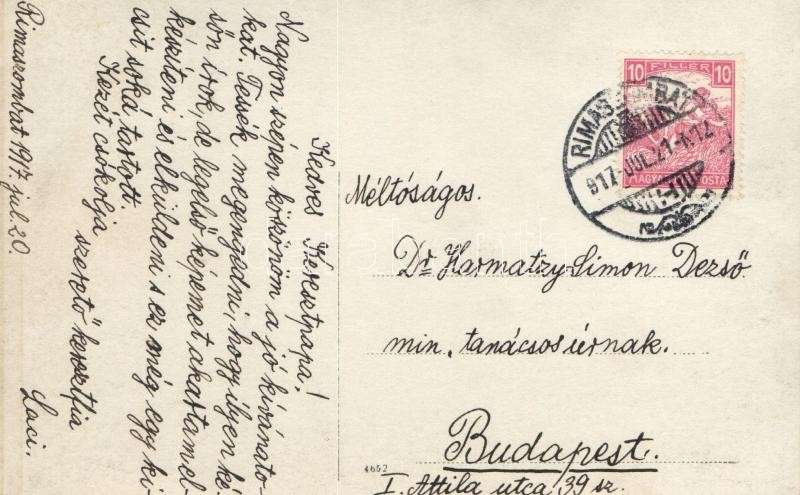 Kedves Keresztpapa!
Nagyon szépen köszönöm a jó kívánato-
kat. Tessék megengedni, hogy ilyen ké-
sőn írok, de legelső képemet akartam el-
készíteni és elküldeni s ez még egy ki-
csit soká tartott.
Kezét csókolja
szerető keresztfia
Laci.
Rimaszombat 1917. jul. 20.
10 FILLÉR 10
MAGYAR POSTA
RIMASZOMBAT
917 JUL. 21
Méltóságos.
Dr Harmatzy Simon Dezső
min. tanácsos úrnak.
Budapest.
I. Attila utca 39 sz.
4662